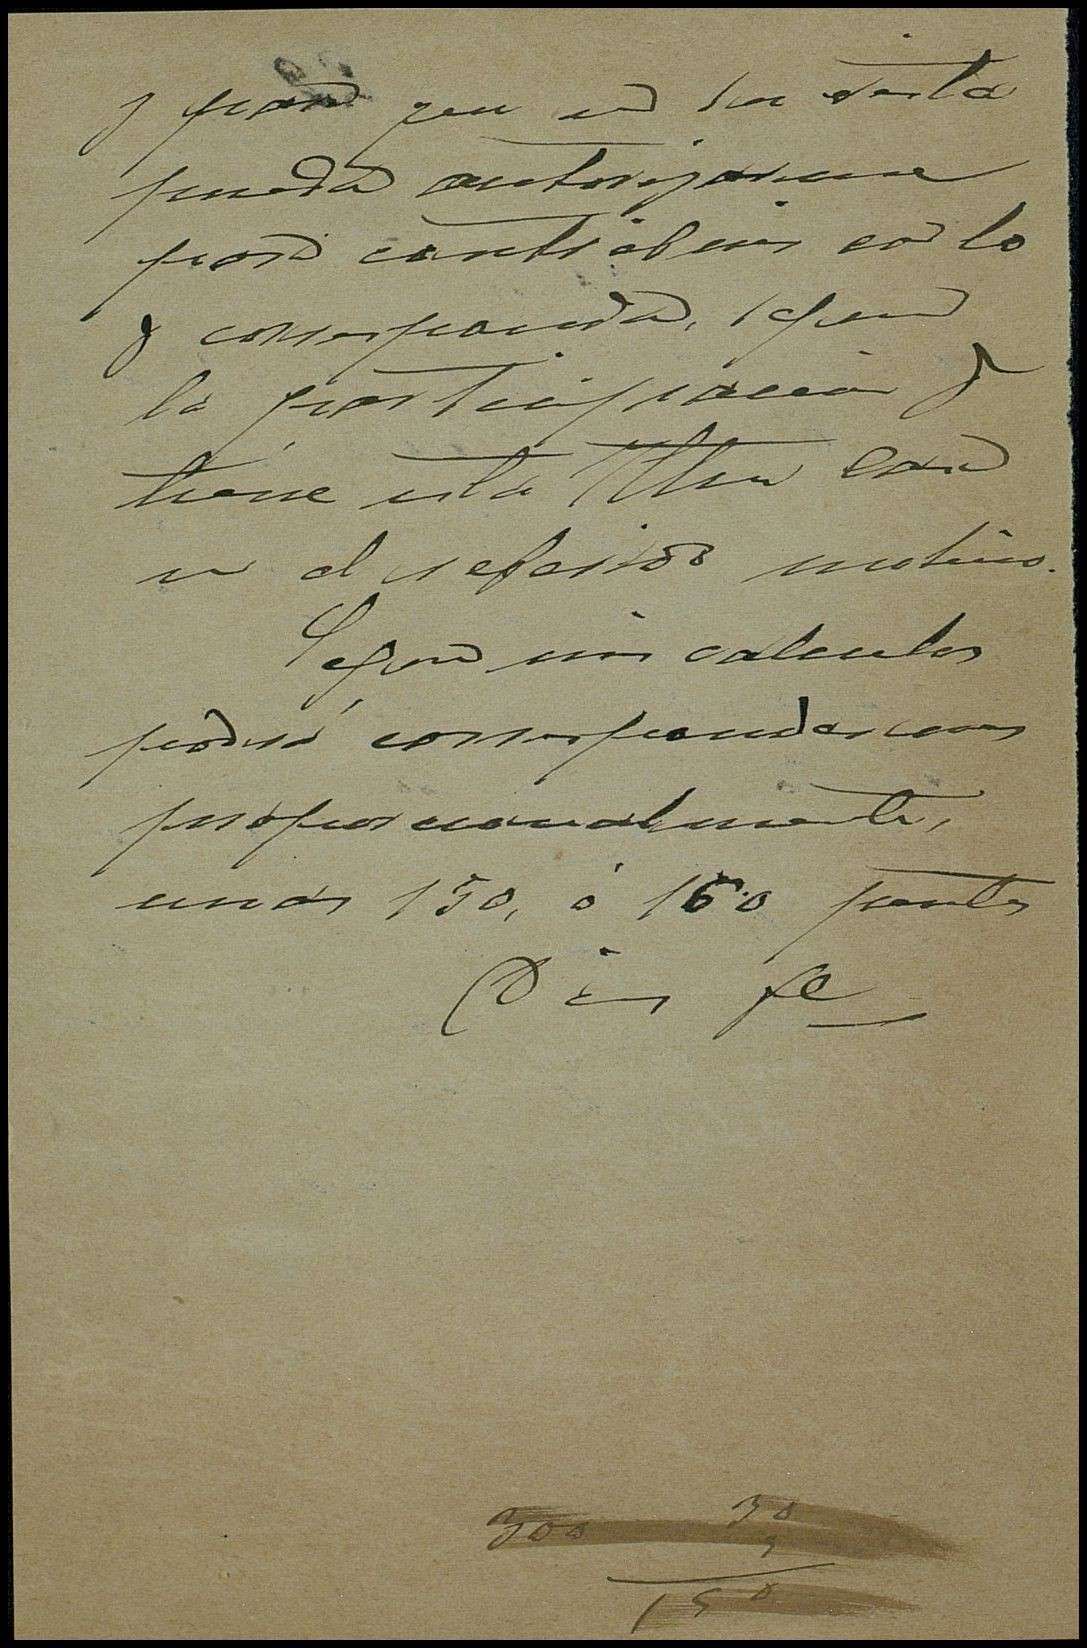 y para que en su vista
pueda autorizarme
para contribuir con lo
q corresponda, segun
la participacion q
tiene esta Casa
en el referido molino.
Segun mis calculos
podrá correspondernos
proporcionalmente,
unas 150, ó 160 pesetas
Dios
300 30
5
150